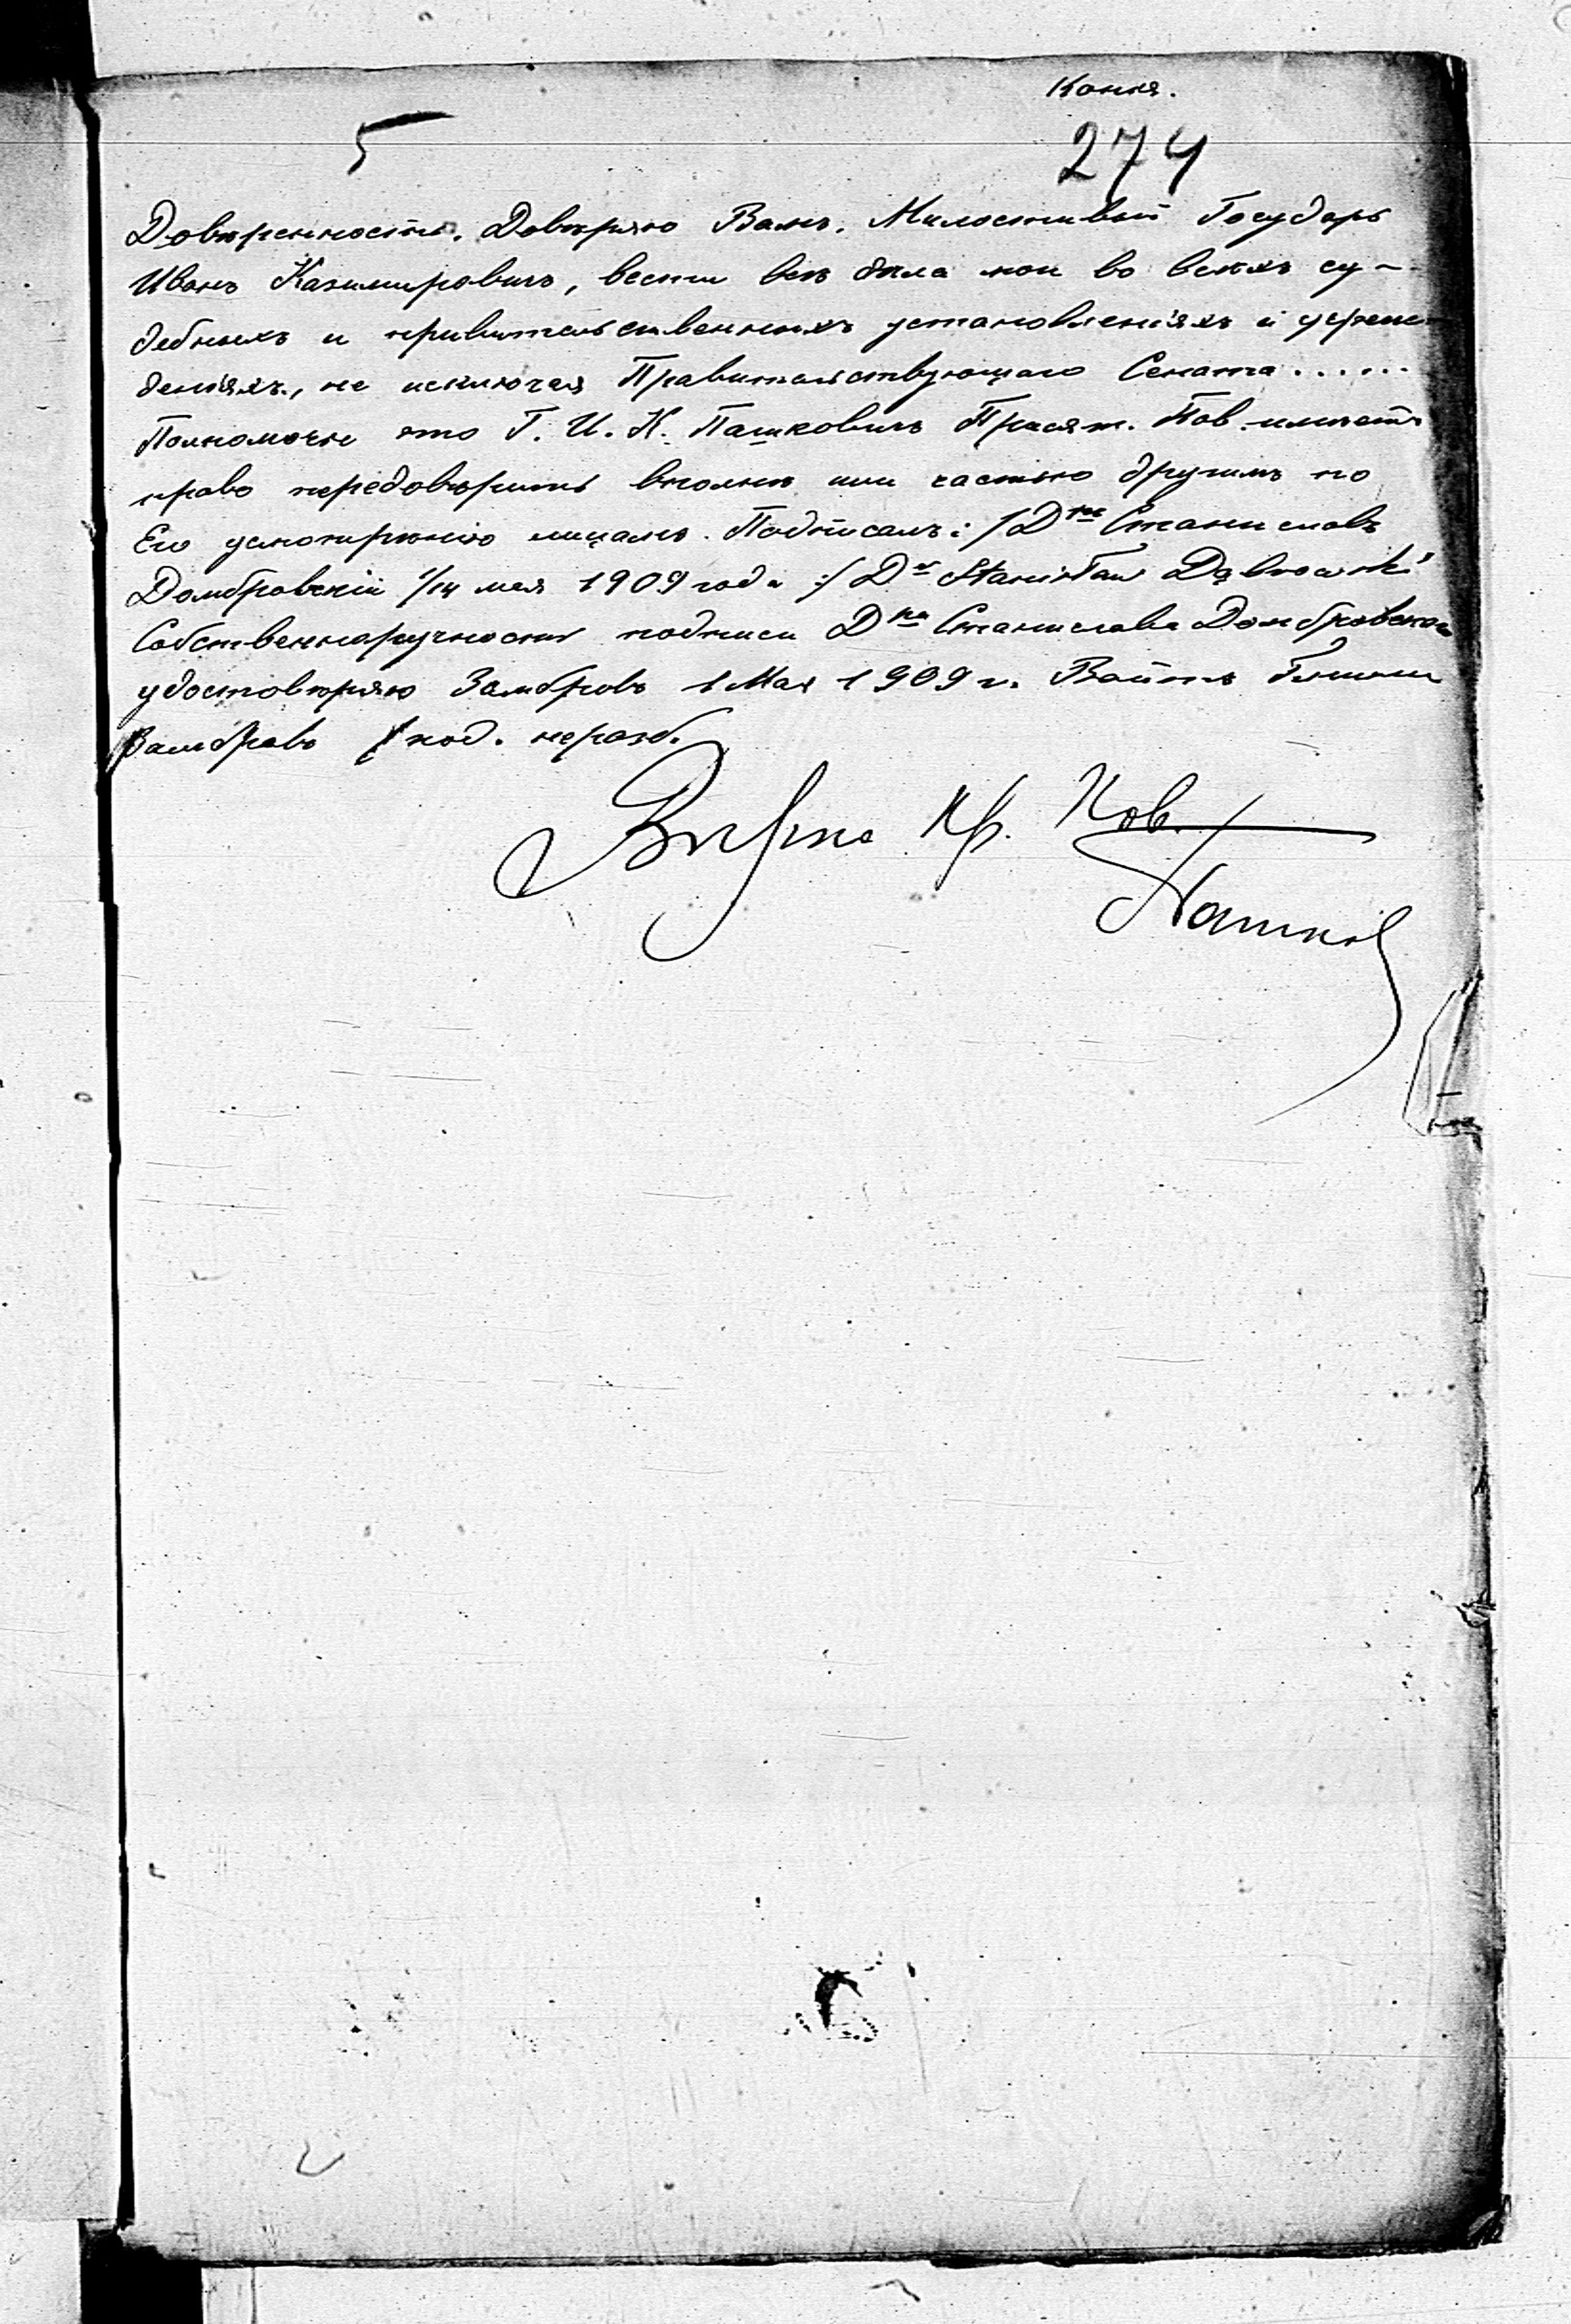 Копія.
5
274
Довѣренность. Довѣряю Вамъ, Милостивый Государь
Иванъ Казимировичъ, вести всѣ дѣла мои во всѣхъ су-
дебныхъ и правительственныхъ установленіяхъ и учреж-
деніяхъ, не исключая Правительствующаго Сената......
Полномочіе это Г. И. К. Пашковичъ Присяж. Пов. имѣетъ
право передовѣрить вполнѣ или частью другимъ по
Его усмотрѣнію лицамъ. Подписалъ: /Dръ Станиславъ
Домбровскій 1/14 мая 1909 года :/ Dr Stanisław Dąbrowski
Собственноручность подписи Dра Станислава Домбровскаго
удостовѣряю Замбровъ 1 Мая 1909 г. Войтъ Гмины
Замбровъ /под. неразб.
Вѣрно Пр. Пов.